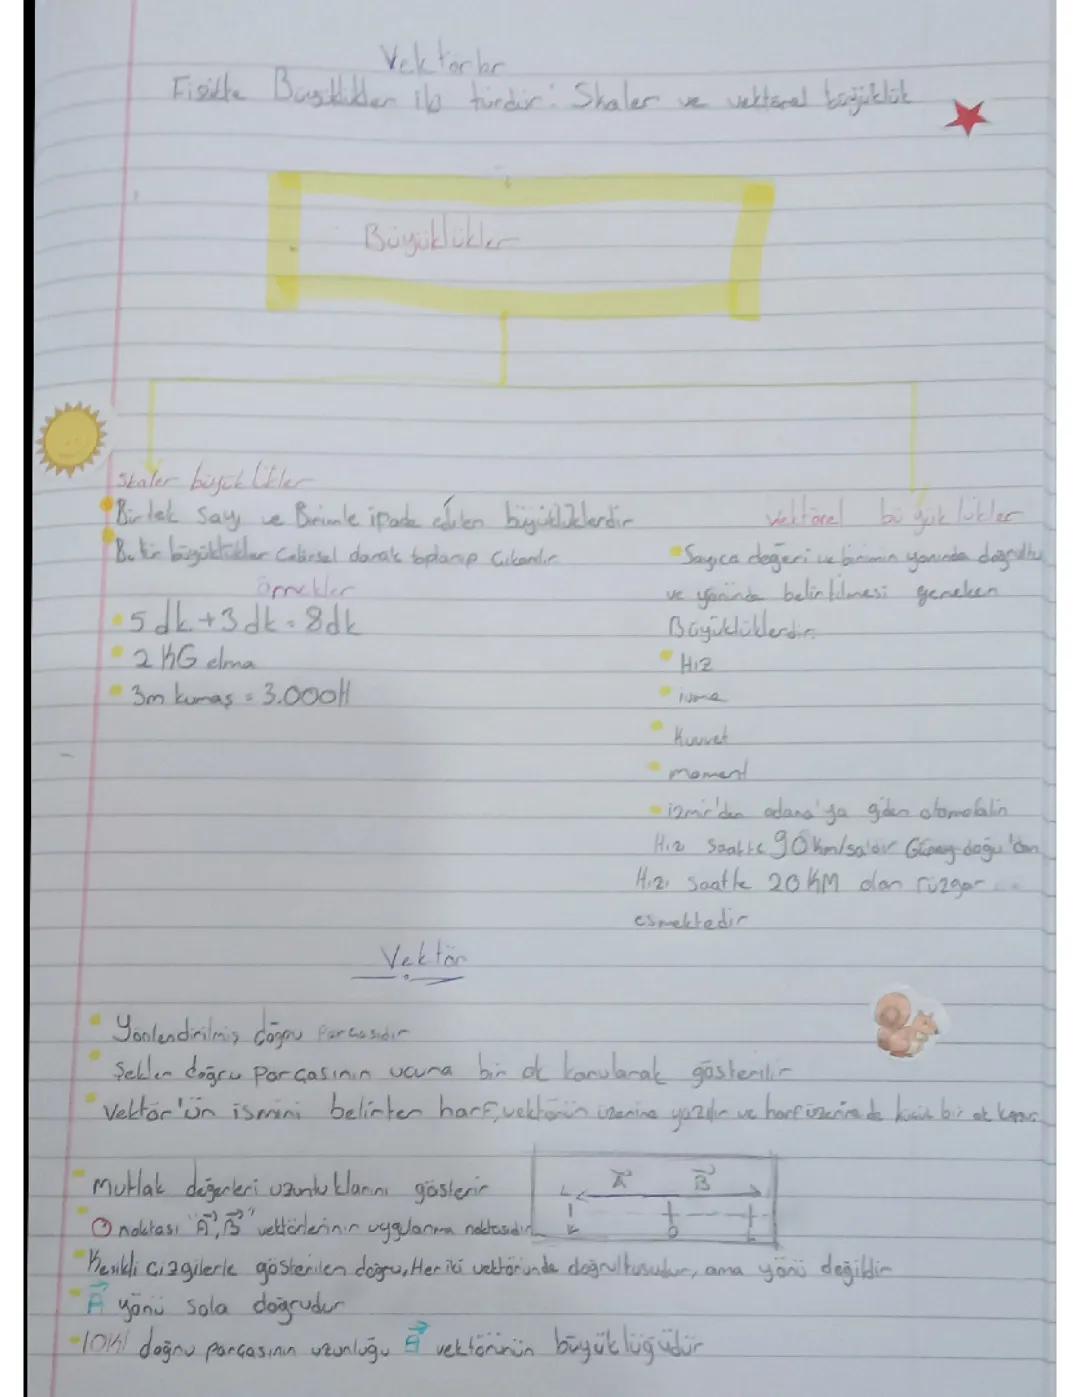 Vektörler
Fizikte Büyüklükler iki türdür: Skaler ve vektörel büyüklük
Büyüklükler
Skaler büyüklükler
Bir tek Sayı ve Birimle ipade edilen büyüklüklerdir
Bu tür büyüklükler Cebirsel olarak toplanıp Çıkarılır
örnekler
5 dk + 3 dk = 8 dk
2 KG elma
3m kumaş = 3.000
Vektörel büyüklükler
Sayıca değeri ve birimin yanında doğrultu
ve yönünde belirtilmesi gereken
Büyüklüklerdir
Hız
ivme
Kuvvet
moment
izmir'den adana'ya giden otomobilin
Hızı Saatte 90 km/sa'dır Güney-doğu'dan
Hızı saatte 20 KM olan rüzgar
esmektedir
Vektör
Yönlendirilmiş doğru Parçasıdır
Şeklen doğru Parçasının ucuna bir ok konularak gösterilir
Vektör'ün ismini belirten harf, vektörün üzerine yazılır ve harf üzerine de küçük bir ok konur
Mutlak değerleri uzunluklarını gösterir
A B
O
O noktası "A, B" vektörlerinin uygulanma noktasıdır
Kesikli çizgilerle gösterilen doğru, Her iki vektöründe doğrultusudur, ama yönü değildir
A yönü sola doğrudur
doğru parçasının uzunluğu vektörünün büyüklüğüdür